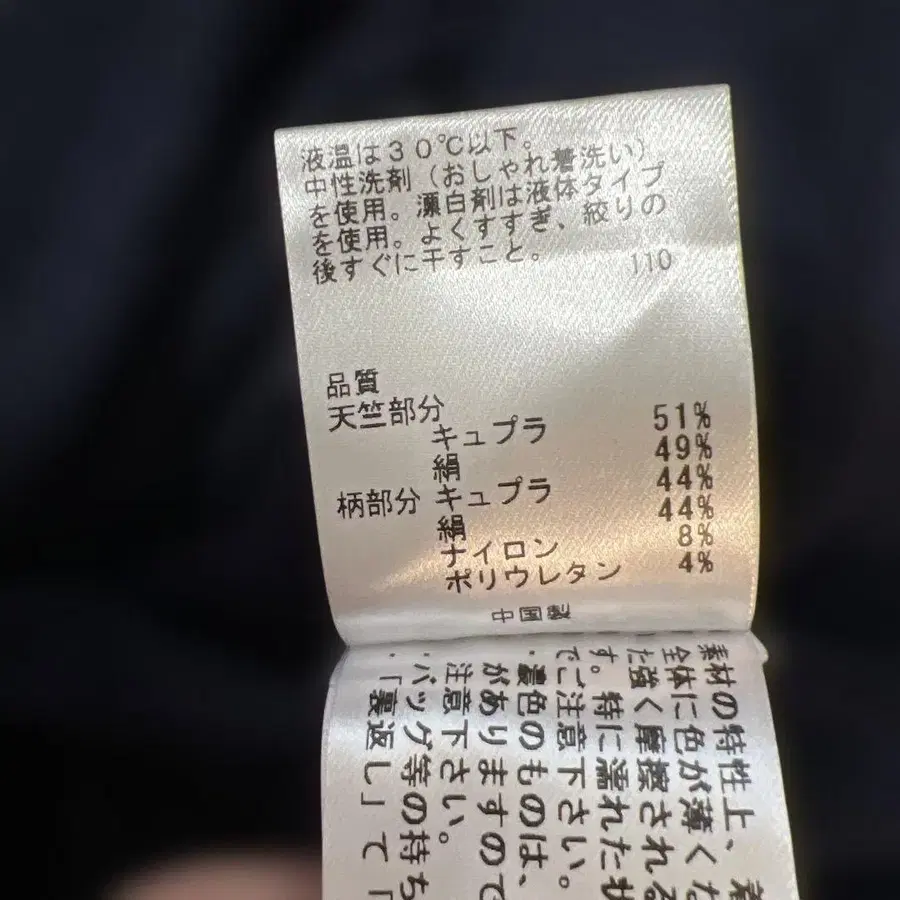 液温は30℃以下。
中性洗剤（おしゃれ着洗い）
を使用。漂白剤は液体タイプ
を使用。よくすすぎ、絞りの
後すぐに干すこと。
110
品質
天竺部分
キュプラ 51%
絹 49%
柄部分 キュプラ 44%
絹 44%
ナイロン 8%
ポリウレタン 4%
中国製
素材の特性上、着
全体に色が薄くな
た強く摩擦される
す。特に濡れた状
でご注意下さい。
・濃色のものは、
がありますので
注意下さい。
・バッグ等の持ち
・「裏返し」て「